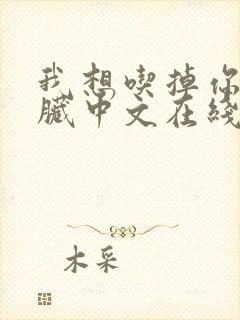 我想喫掉你
臟中文在綫
木采